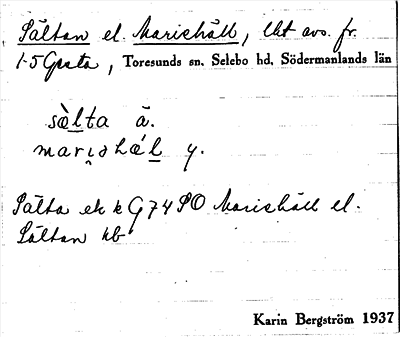 Sältan el. Marishäll, lht avs. fr.
1-5 Gpsta, Toresunds sn. Selebo hd. Södermanlands län
sὰlta ä.
marishǽl y.
Sälta ek k G74 SO Marishäll el.
Sältan hb
Karin Bergström 1937